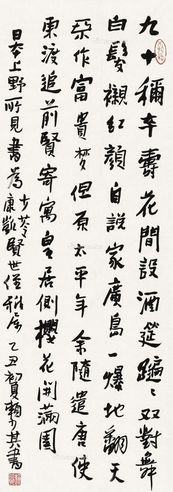 九十稱壽花間設酒筵翩〻双對舞
白髮襯紅顏自説家廣島一爆地翻天
作富貴梦但原太平年余隨遣唐使
東渡追前賢寄寓皇居側櫻花開滿園
日本上野所見書為康賢世侄乙丑初夏賴少其書